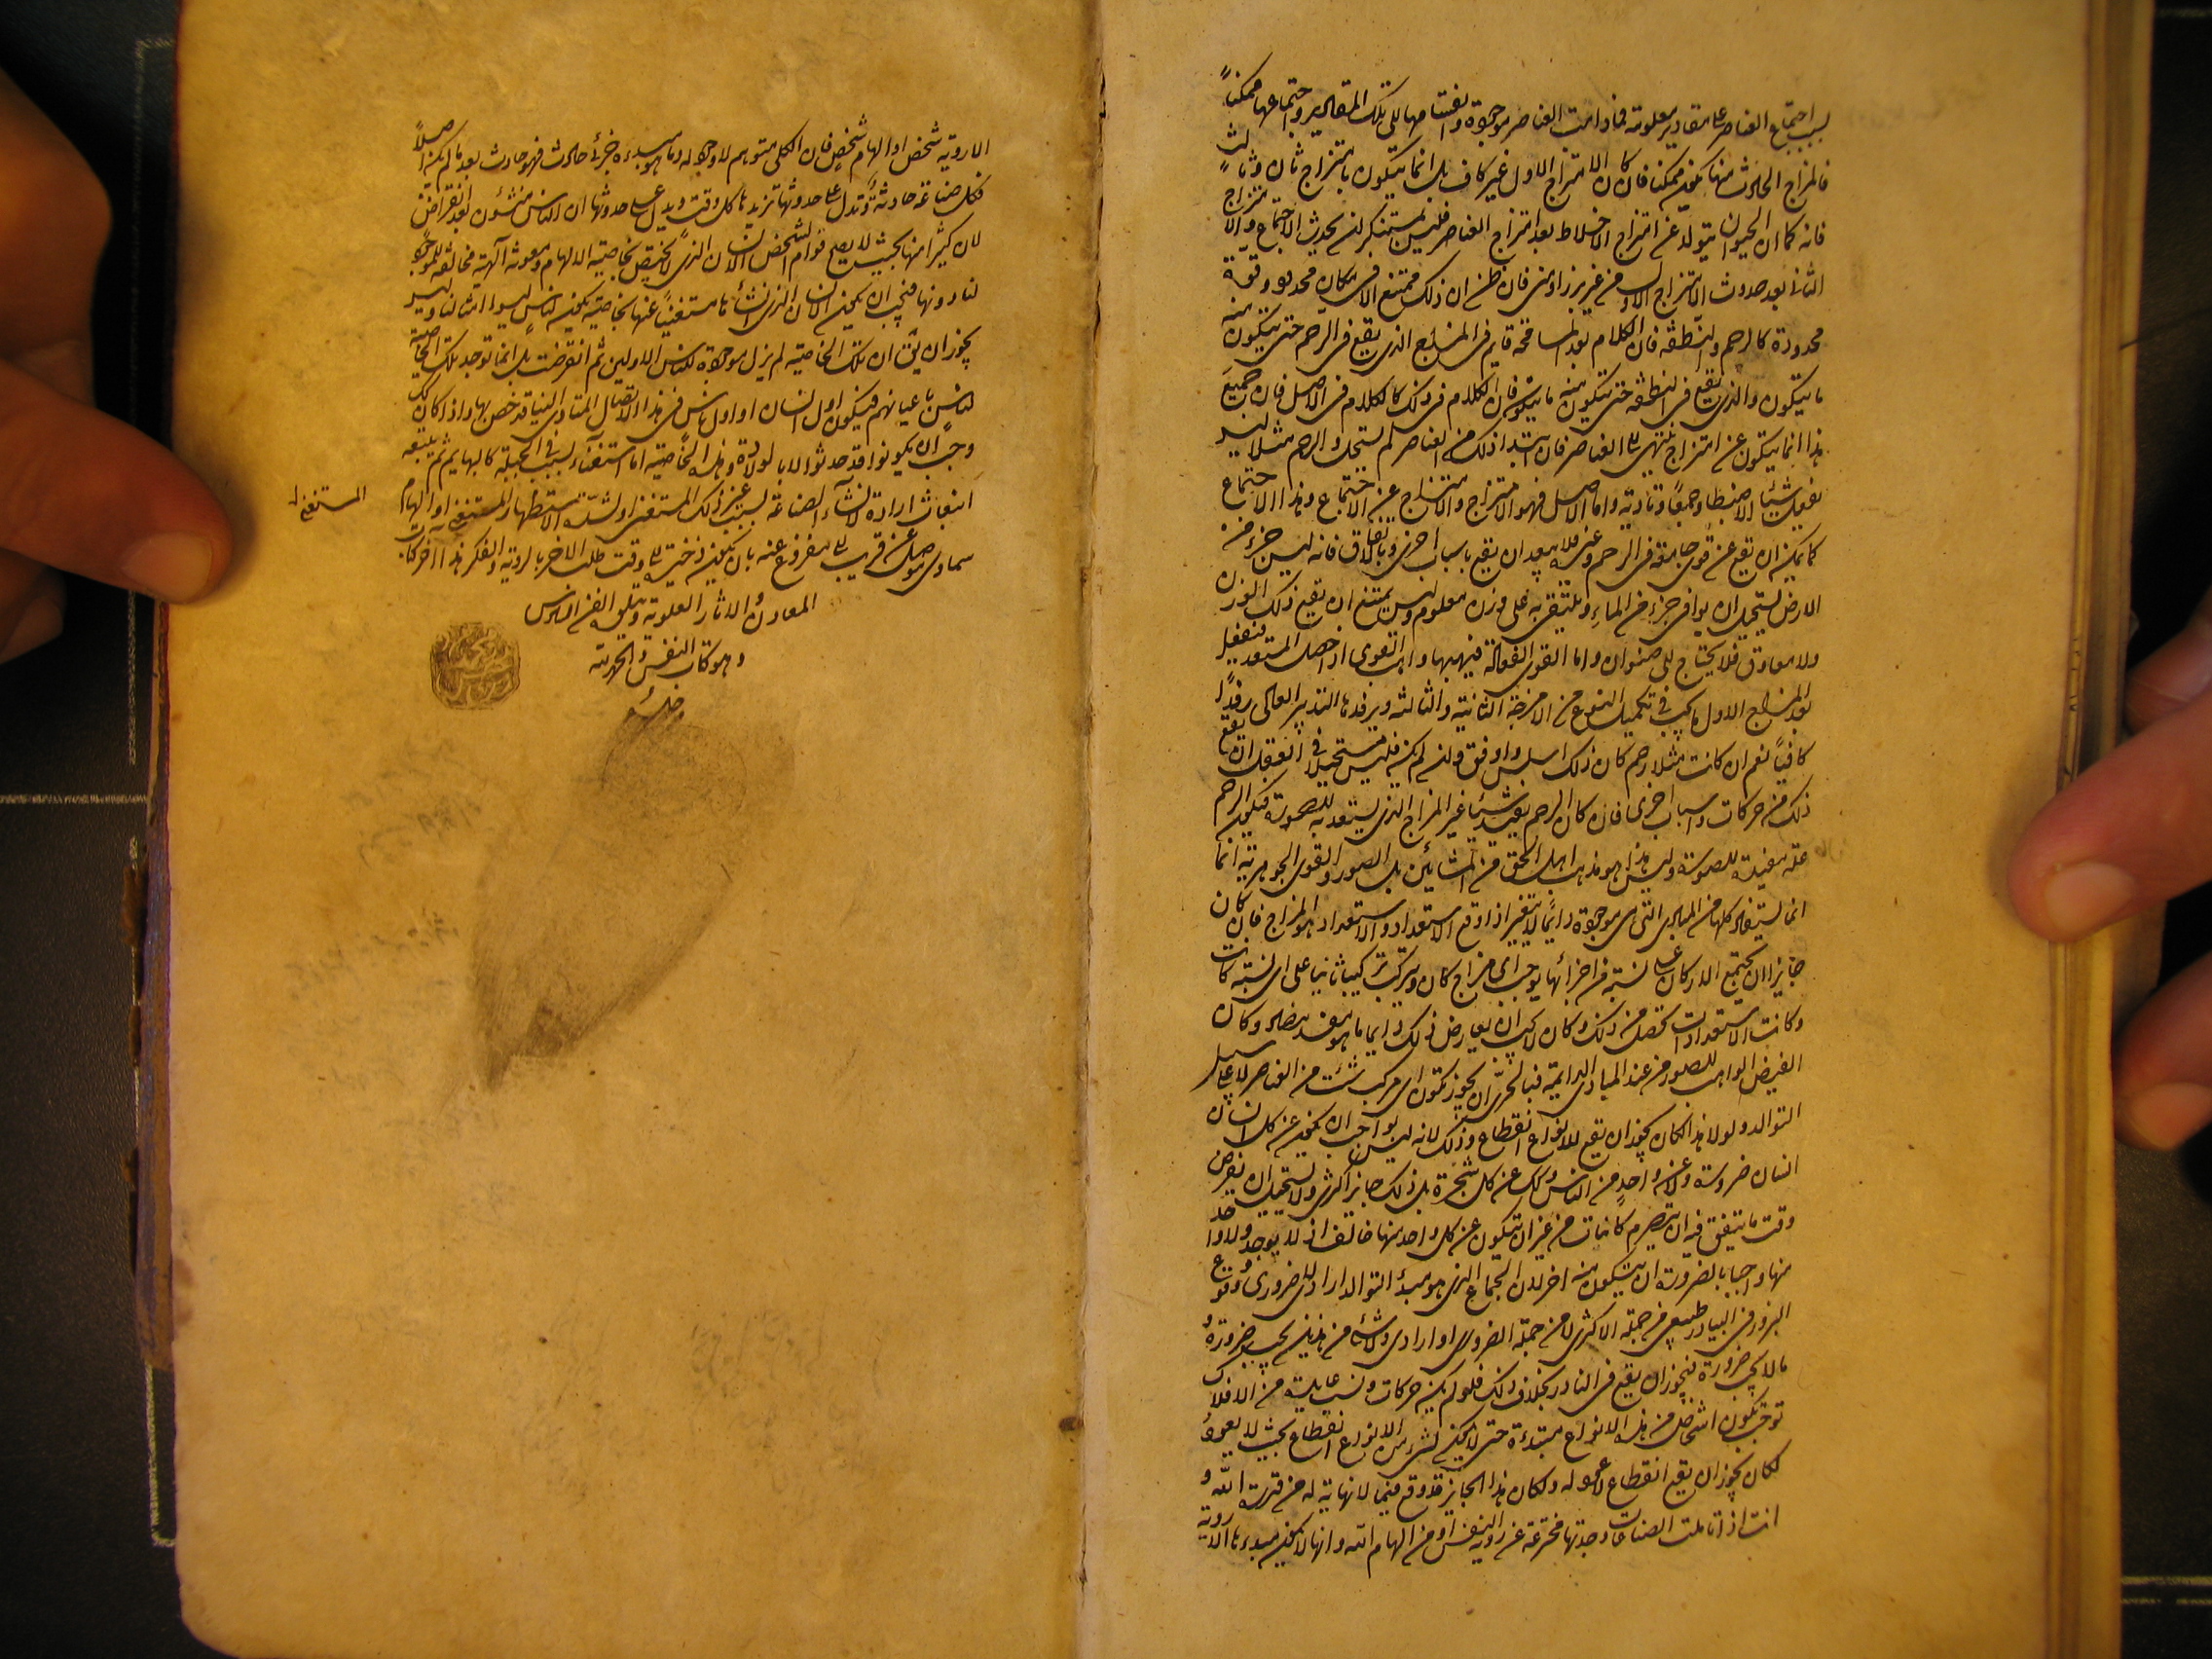 بسبب اجتماع العناصر على مقادير معلومة فما دامت العناصر موجودة وانقسامها الى تلك المقادير واجتماعها ممكناً
فالمزاج الحادث منها يكون ممكنا فان كان الامتزاج الاول غير كاف بل انما يتكون بامتزاج ثان وثالث
فانه كما ان الحيوان يتولد عن امتزاج الاخلاط بعد امتزاج العناصر فليس بمستنكر ان يحدث الاجتماع والامتزاج
الثانى بعد حدوث الامتزاج الاول من غير بزر او منى فان ظن ان ذلك ممتنع الا فى مكان محدود وقوة
محدودة كالرحم والنطفة فان الكلام بعد المسامحة قايم فى المزاج الذى يقع فى الرحم حتى يتكون منه
ما يتكون والذى يقع فى النطفة حتى يتكون منه ما يتكون فان الكلام فى ذلك كالكلام فى الاصل فان جميع
هذا انما يتكون عن امتزاج ينتهى الى العناصر فان ابتدا ذلك من العناصر لم يستحل والرحم مثلا ليس
يفعل شيئا الا ضبطا وجمعا وتادية واما الاصل فهو الامتزاج والامتزاج عن الاجتماع وهذا الاجتماع
كما يمكن ان يقع عن قوى جامعة فى الرحم وغيره فلا يبعد ان يقع باسباب اخرى وباتفاق فانه ليس جزء من
الارض يستحيل ان يوافى جزء من الماء ويلتقى به على وزن معلوم وليس يمتنع ان يقع ذلك الوزن
ولا معاوق فلا يحتاج الى صنوان واما القوى الفعالة فيهبها واهب القوى اذا حصل المستعد فينفعل
بعد المزاج الاول ما يجب فى تكميل النوع من الامزجة الثانية والثالثة ويرفدها التدبير العالى رفدا
كافيا نعم ان كانت مثلا رحم كان ذلك اسلس واوفق وان لم يكن فليس مستحيلا فى العقل ان يقع
ذلك من حركات واسباب اخرى فان كان الرحم يفيد شيئا غير المزاج الذى يستعد به للصورة فيكون الرحم
علة مفيدة للصورة وليس هذا هو مذهب اهل الحق من المشائين بل الصور والقوى الجوهرية انما
انما يستفاد كلها من المبادى التى هى موجودة دائما لا يتغير اذا وقع الاستعداد والاستعداد هو المزاج فان كان
جايزا ان يجتمع الاركان على نسبة من اجزائها يوجب اى مزاج كان ويتركب تركيبا ثانيا على اى نسبة كانت
وكانت الاستعدادات تحصل من ذلك وكان لا يجب ان يعارض ذلك دايما ما هو مفسد مضاد وكان
الفيض الواهب للصور من عند المبادى الدايمة فبالحرى ان يجوز تكون اى مركب شئت من العناصر لا على سبيل
التوالد ولولا هذا لكان يجوز ان يقع للانواع انقطاع وذلك لانه ليس بواجب ان يكون عن كل انسان
انسان ضرورة ولا عن واحد من الناس ولا عن كل شجرة بل ذلك جايز اكثرى ولا يستحيل ان يفرض
وقت ما يتفق فيه ان يتصرم كاينات من غير ان يتكون عن كل واحد منها خالف اذ لا يوجد ولا واحد
منها واجبا بالضرورة ان يتكون منه اخر لان الجماع الذى هو مبدء التوالد ارادى لا ضرورى ووقوع
البزور فى البيادر طبيعى من جملة الاكثرى لا من جملة الضرورى او ارادى ولا شئ من هذين يجب ضرورة و
ما لا يجب ضرورة فيجوز ان يقع فى النادر بخلاف ذلك فلو لم يكن حركات ونسب عايدة من الافلاك
توجب تكون اشخاص من هذه الانواع مبتدءة حتى لا يكون لشىء من الانواع انقطاع بحيث لا يعود
لكان يجوز ان يقع انقطاع لا عود له ولكان هذا الجايز قد وقع فيما لا نهاية له من قدرة الله و
انت اذا تاملت الصناعات وجدتها مخترعة عن روية النفس او من الهام الله وانها لا يكون مبدءها الا روية
الا روية شخص او الهام شخص فان الكلى متوهم لا وجود له وما هو مبدءه جزئى حادث فهو حادث بعد ما لم يكن اصلاً
فكل صناعة حادثة وتدل على حدوثها تزيدها كل وقت ويدل على حدوثها ان الناس منشئون بعد انقراض
لان كثيرا منها بحيث لا يصح قوام الشخص الانسان الذى لا يختص بخاصية الالهام ومعونة آلهية مخالفة للموجود
لنا دونها فيجب ان يكون الانسان الذى انشأها مستغنيا عنها بخاصية يكون لناس ليسوا امثالنا وليس
يجوز ان يقال ان تلك الخاصية لم يزل موجودة للناس الاولين ثم انقرضت بل انما توجد تلك الخاصية
لناس باعيانهم فيكون اول انسان او اول ناس فى هذا الاتصال المتادى الينا قد خص بها واذا كان كك
وجب ان يكونوا قد حدثوا لا بالولادة وهذه الخاصية اما استغناء بسبب فى الجبلة كالبهايم ثم يتبعه
انبعاث ارادة لانشاء الصناعة بسبب غير ذلك المستغنى او لشدة الاستظهار للمستغنى به او الهام
المستغنى
سماوى موصل عن قريب الى مفروغ عنه بان يكون ذخيرة الى وقت طلب الاخر بالروية والفكر هذا اخر كتاب
المعادن والاثار العلوية ويتلوه الفن السادس
وهو كتاب النفس والحمد لله